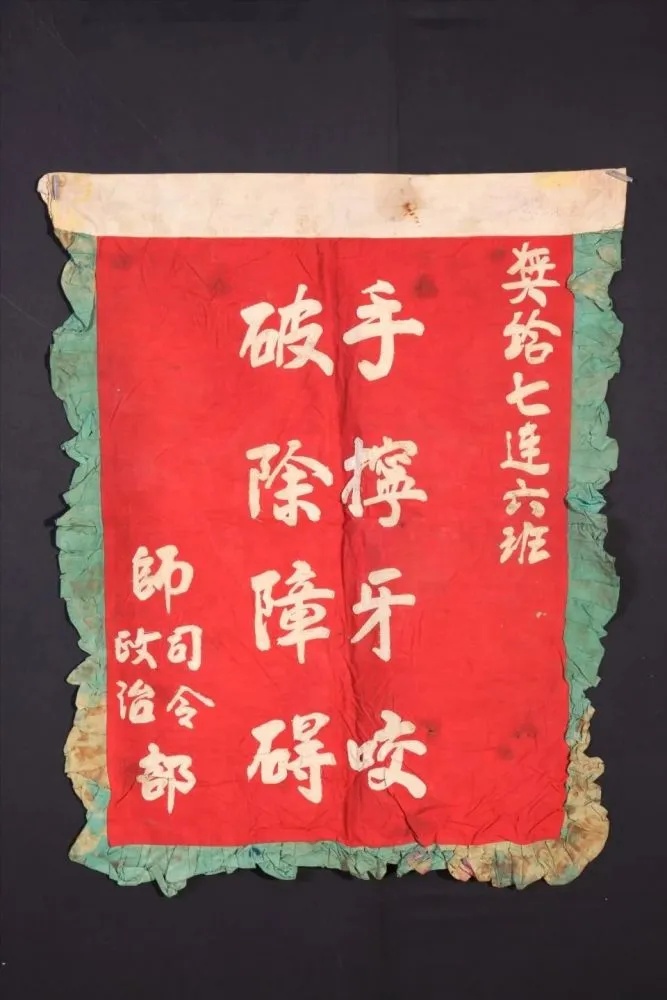 奬给七連六班
手擰牙咬
破除障碍
師
司令
政治
部